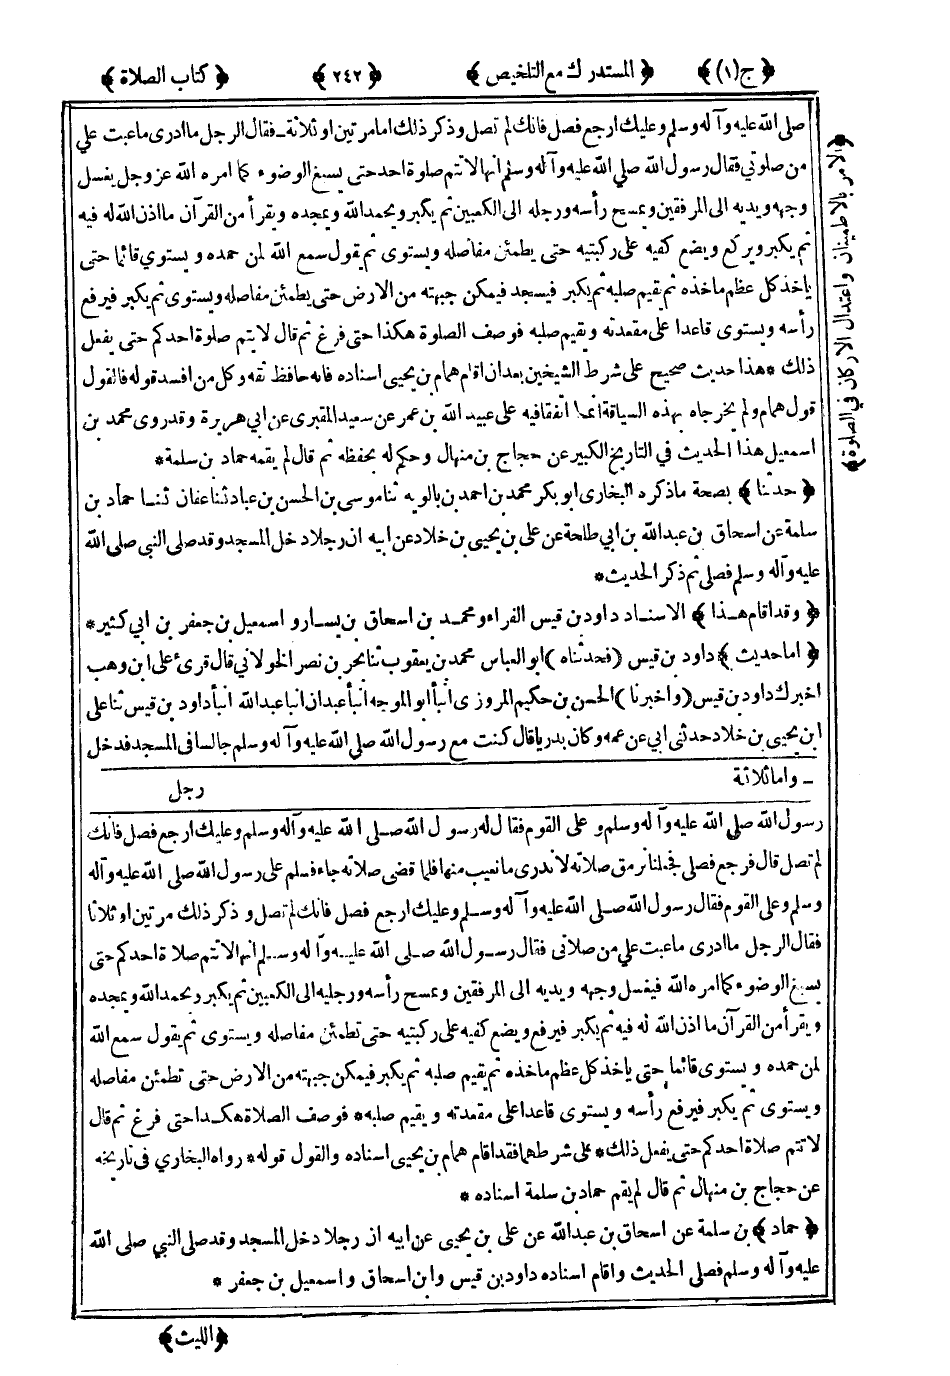 ﴿ج(١)﴾ ﴿المستدرك مع التلخيص﴾ ﴿٢٤٢﴾ ﴿كتاب الصلاة﴾
صلى الله عليه وآله وسلم وعليك ارجع فصل فانك لم تصل وذكر ذلك اما مرتين او ثلاثة ـ فقال الرجل ما ادرى ما عبت علي
من صلوتي فقال رسول الله صلي الله عليه وآله وسلم انها لا تتم صلوة احد حتى يسبغ الوضوء كما امره الله عز وجل يغسل
وجهه ويديه الى المرفقين ويمسح رأسه ورجله الى الكعبين ثم يكبر ويحمد الله ويمجده ويقرأ من القرآن ما اذن الله له فيه
ثم يكبر ويركع ويضع كفيه على ركبتيه حتى يطمئن مفاصله ويستوى ثم يقول سمع الله لمن حمده ويستوي قائما حتى
ياخذ كل عظم ماخذه ثم يقيم صلبه ثم يكبر فيسجد فيمكن جبهته من الارض حتى يطمئن مفاصله ويستوى ثم يكبر فيرفع
رأسه ويستوى قاعدا على مقعدته ويقيم صلبه فوصف الصلوة هكذا حتى فرغ ثم قال لا يتم صلوة احدكم حتى يفعل
ذلك * هذا حديث صحيح على شرط الشيخين بعد ان اقام همام بن يحيى اسناده فانه حافظ ثقه وكل من افسد قوله فالقول
قول همام ولم يخرجاه بهذه السياقة انما اتفقا فيه على عبيد الله بن عمر عن سعيد المقبرى عن ابي هريرة وقد روى محمد بن
اسمعيل هذا الحديث في التاريخ الكبير عن حجاج بن منهال وحكم له بحفظه ثم قال لم يقمه حماد بن سلمة*
﴿حدثنا﴾ بصحة ما ذكره البخارى ابو بكر محمد بن احمد بن بالويه ثنا موسى بن الحسن بن عباد ثنا عفان ثنا حماد بن
سلمة عن اسحاق بن عبد الله بن ابي طلحة عن على بن يحيى بن خلاد عن ابيه ان رجلا دخل المسجد وقد صلى النبي صلى الله
عليه وآله وسلم فصلى ثم ذكر الحديث*
﴿وقد اقام هذا﴾ الاسناد داود بن قيس الفراء ومحمد بن اسحاق بن يسار و اسمعيل بن جعفر بن ابي كثير*
﴿اما حديث﴾ داود بن قيس (فحدثناه) ابو العباس محمد بن يعقوب ثنا بحر بن نصر الخولاني قال قرئ على ابن وهب
اخبرك داود بن قيس (واخبرنا) الحسن بن حكيم المروزى انبأ ابو الموجه انبأ عبدان انبا عبد الله انبأ داود بن قيس ثنا على
ابن يحيى بن خلاد حدثنى ابي عن عمه وكان بدريا قال كنت مع رسول الله صلى الله عليه وآله وسلم جالسا فى المسجد فدخل
ـ واما ثلاثة
رجل
رسول الله صلى الله عليه وآله وسلم و على القوم فقال له رسول الله صلى الله عليه وآله وسلم وعليك ارجع فصل فانك
لم تصل قال فرجع فصلى فجعلنا نرمق صلاته لا ندرى ما نعيب منها فلما قضى صلاته جاء فسلم على رسول الله صلى الله عليه وآله
وسلم وعلى القوم فقال رسول الله صلى الله عليه وآله وسلم وعليك ارجع فصل فانك لم تصل وذكر ذلك مرتين او ثلاثا
فقال الرجل ما ادرى ما عبت علي من صلاتى فقال رسول الله صلى الله عليه وآله وسلم انها لا تتم صلاة احدكم حتى
يسبغ الوضوء كما امره الله فيغسل وجهه ويديه الى المرفقين ويمسح رأسه ورجليه الى الكعبين ثم يكبر ويحمد الله ويمجده
ويقرأ من القرآن ما اذن الله له فيه ثم يكبر فيرفع ويضع كفيه على ركبتيه حتى تطمئن مفاصله ويستوى ثم يقول سمع الله
لمن حمده و يستوى قائما حتى ياخذ كل عظم ماخذه ثم يقيم صلبه ثم يكبر فيمكن جبهته من الارض حتى تطمئن مفاصله
ويستوى ثم يكبر فيرفع رأسه ويستوى قاعدا على مقعدته و يقيم صلبه* فوصف الصلاة هكذا حتى فرغ ثم قال
لا تتم صلاة احدكم حتى يفعل ذلك* على شرطهما فقد اقام همام بن يحيى اسناده والقول قوله* رواه البخاري فى تاريخه
عن حجاج بن منهال ثم قال لم يقم حماد بن سلمة اسناده *
﴿حماد﴾ بن سلمة عن اسحاق بن عبد الله عن على بن يحيى عن ابيه ان رجلا دخل المسجد وقد صلى النبي صلى الله
عليه وآله وسلم فصلى الحديث واقام اسناده داود بن قيس وابن اسحاق واسمعيل بن جعفر *
﴿الليث﴾
﴿الامر بالاطمينان واعتدال الاركان في الصلوة﴾